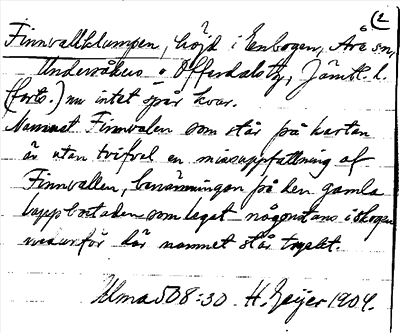 (2
Finnvallklumpen, höjd i Enbogen, Åre sn,
Undersåkers o Offerdals tg, Jämtl. l.
(forts.) nu intet spår kvar.
Namnet Finnvalen som står på kartan
är utan tvifvel en missuppfattning af
Finnvallen, benämningen på den gamla
lappbostaden som legat någonstans i skogen
nedanför där namnet står tryckt.
Ulma 508:30. H. Geijer 1904.